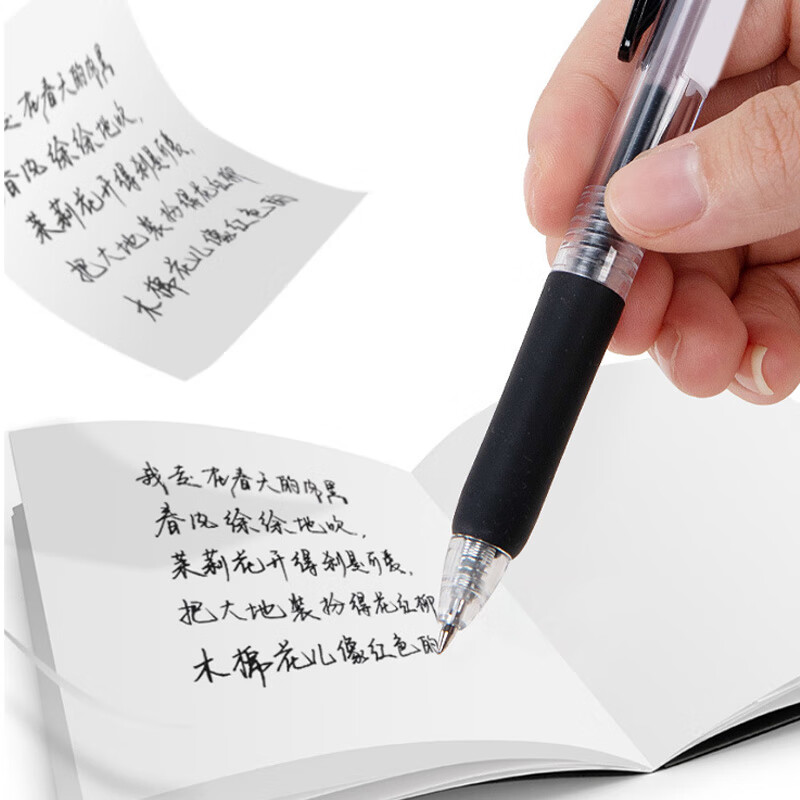 在春天的内黑
春风徐徐地吹,
茉莉花开得刹是可爱,
把大地装扮得花红柳
木棉花儿像红色的
我走在春天的内黑
春风徐徐地吹,
茉莉花开得刹是可爱,
把大地装扮得花红柳
木棉花儿像红色的